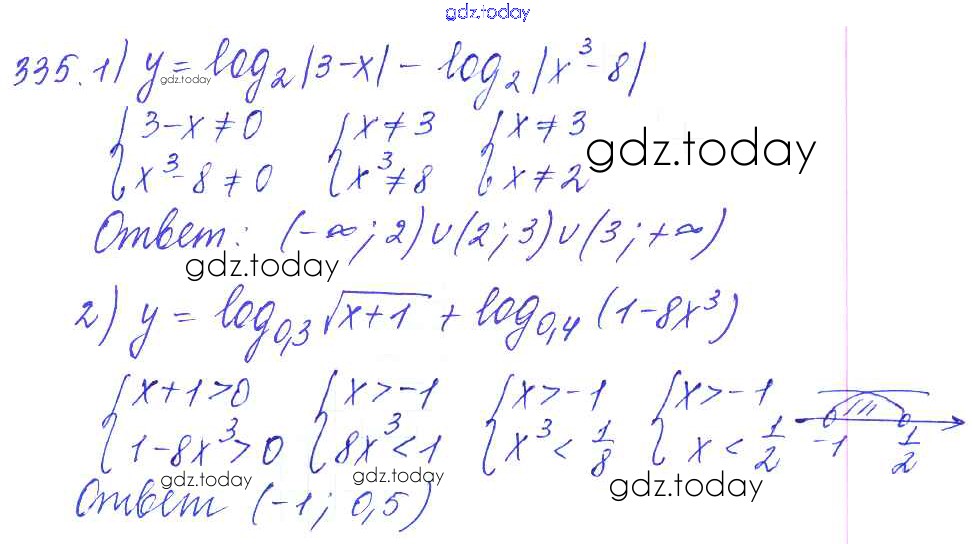 gdz.today
335. 1) y = log₂|3-x| - log₂|x³-8|
gdz.today
{3-x≠0 {x≠3 {x≠3
{x³-8≠0 {x³≠8 {x≠2
gdz.today
Ответ: (-∞; 2)∪(2; 3)∪(3; +∞)
gdz.today
2) y = log₀,₃√(x+1) + log₀,₄(1-8x³)
{x+1>0 {x>-1 {x>-1 {x>-1
{1-8x³>0 {8x³<1 {x³<1/8 {x<1/2
-1 1/2
gdz.today gdz.today
Ответ (-1; 0,5)